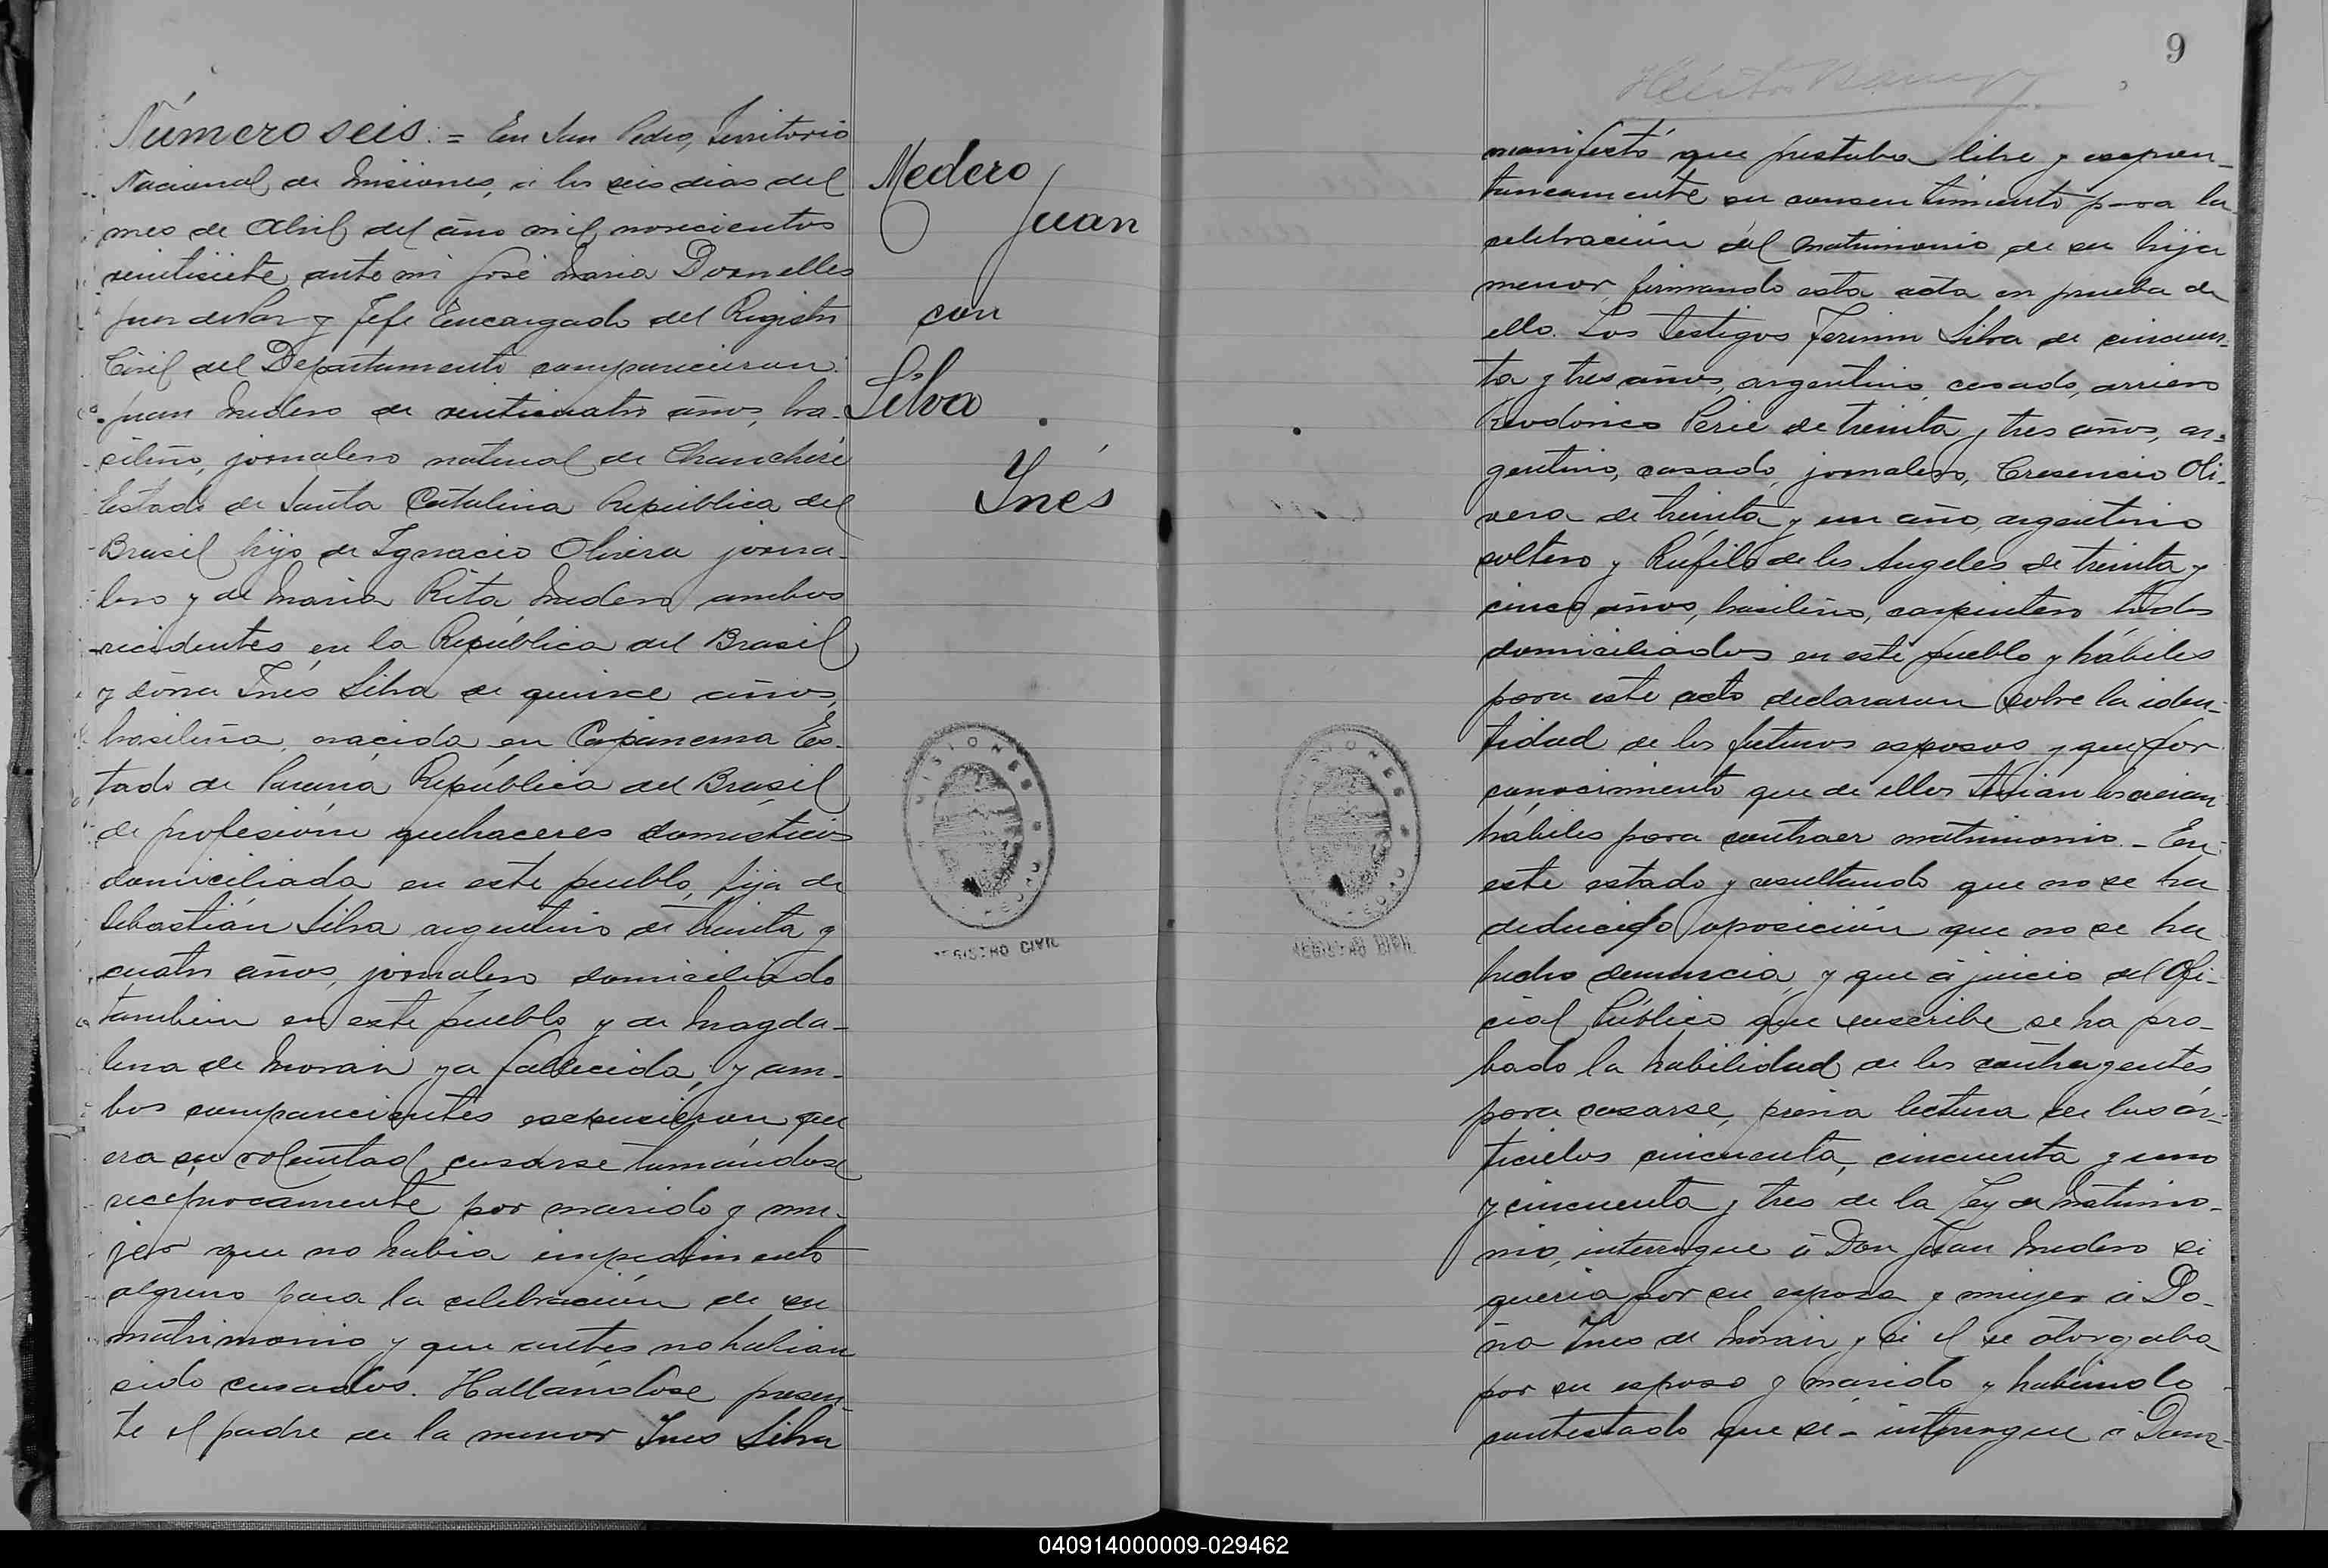 Número seis. = En San Pedro, Territorio
Nacional de Misiones, á los seis dias del
mes de Abril del año mil novecientos
veintisiete, ante mi José Maria Dornelles
Juez de Paz y Jefe Encargado del Registro
Civil del Departamento comparecieron:
Juan Medero de veinticuatro años, bra-
sileño, jornalero natural de Chancheré
Estado de Santa Catalina República del
Brasil hijo de Ignacio Olivera jorna-
lero y de Maria Rita Medero ambos
recidentes en la República del Brasil
y doña Inés Silva de quince años,
brasileña, nacida en Capanema Es-
tado de Paraná República del Brasil
de profesión quehaceres domésticos
domiciliada en este pueblo, hija de
Sebastián Silva argentino de treinta y
cuatro años, jornalero domiciliado
tambien en este pueblo y de Magda-
lena de Morain ya fallecida, y am-
bos comparecientes expusieron que
era su voluntad casarse tomándose
reciprocamente por marido y mu-
jer que no habia impedimento
alguno para la celebración de su
matrimonio y que antes no habian
sido casados. Hallándose presen-
te el padre de la menor Ines Silva
Medero
Juan
con
Silva
Ynés
MISIONES
REGISTRO CIVIL
9
manifestó que prestaba libre y espon-
taneamente su consentimiento para la
celebración del matrimonio de su hija
menor, firmando esta acta en prueba de
ello. Los testigos Fermin Silva de cincuen-
ta y tres años, argentino, casado, arriero
Teodorico Perie de treinta y tres años, ar-
gentino, casado, jornalero, Cresencio Oli-
vera de treinta y un año, argentino
soltero y Rúfilo de los Angeles de treinta y
cinco años, brasileño, carpintero todos
domiciliados en este pueblo y hábiles
para este acto declararon sobre la iden-
tidad de los futuros esposos y que por
conocimiento que de ellos tenian los creian
hábiles para contraer matrimonio. - En
este estado y resultando que no se ha
deducido oposición que no se ha
hecho denuncia, y que á juicio del Ofi-
cial Público que suscribe se ha pro-
bado la habilidad de los contrayentes
para casarse, previa lectura de los ar-
ticulos cincuenta, cincuenta y uno
y cincuenta y tres de la Ley de Matrimo-
nio, interrogue á Don Juan Medero si
queria por su esposa y mujer á Do-
ña Ines de Morain y si el se otorgaba
por su esposo y marido y habiendo
contestado que si - interrogue á Doña
MISIONES
REGISTRO CIVIL
040914000009-029462